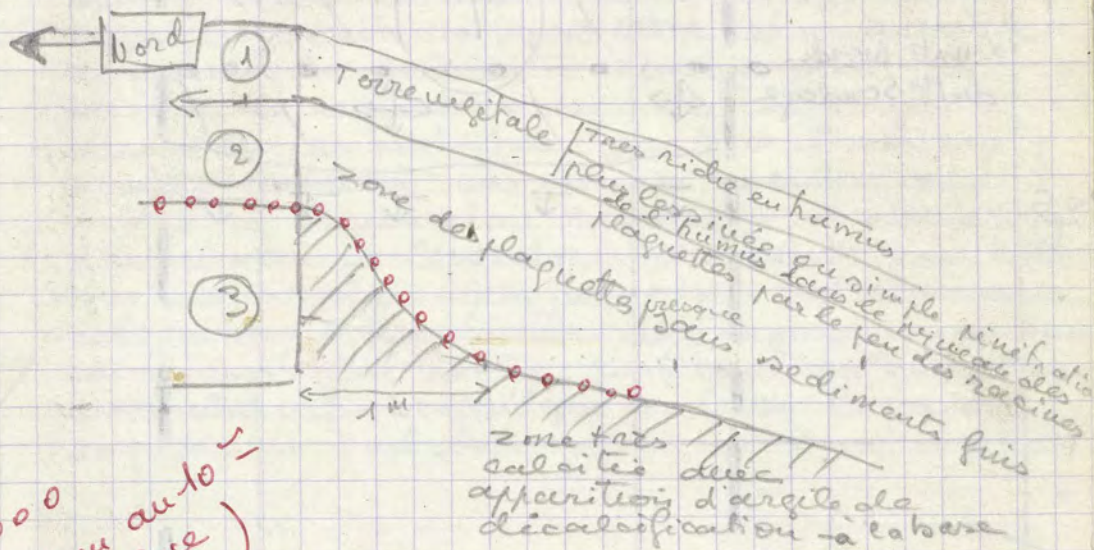 Nord
1
Terre végétale
Très riche en humus
plus ou simple pénétration
de l'humus dans le niveau des
plaquettes par le jeu des racines
2
Zone des plaquettes presque sans sediments fins
3
1 m
zone très
calcitée avec
apparition d'argile de
décalcification à la base
au 10e